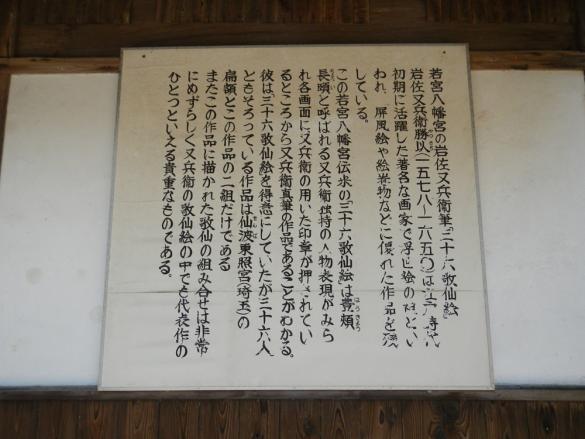 若宮八幡宮の岩佐又兵衛筆「三十六歌仙絵」
岩佐又兵衛勝以(一五七八ー一六五〇)は江戸時代
初期に活躍した著名な画家で浮世絵の祖といい
われ、屏風絵や絵巻物などに優れた作品を残
している。
この若宮八幡宮伝来の「三十六歌仙絵」は豊頬
ほうきょう
長頤と呼ばれる又兵衛独特の人物表現がみら
れ各画面に又兵衛の用いた印章が押されてい
るところから又兵衛真筆の作品であることがわかる。
彼は三十六歌仙絵を得意にしていたが三十六人
ともそろっている作品は仙波東照宮(埼玉)の
扁額とこの作品の二組だけである
またこの作品に描かれた歌仙の組み合せは非常
にめずらしく又兵衛の歌仙絵の中でも代表作の
ひとつといえる貴重なものである。